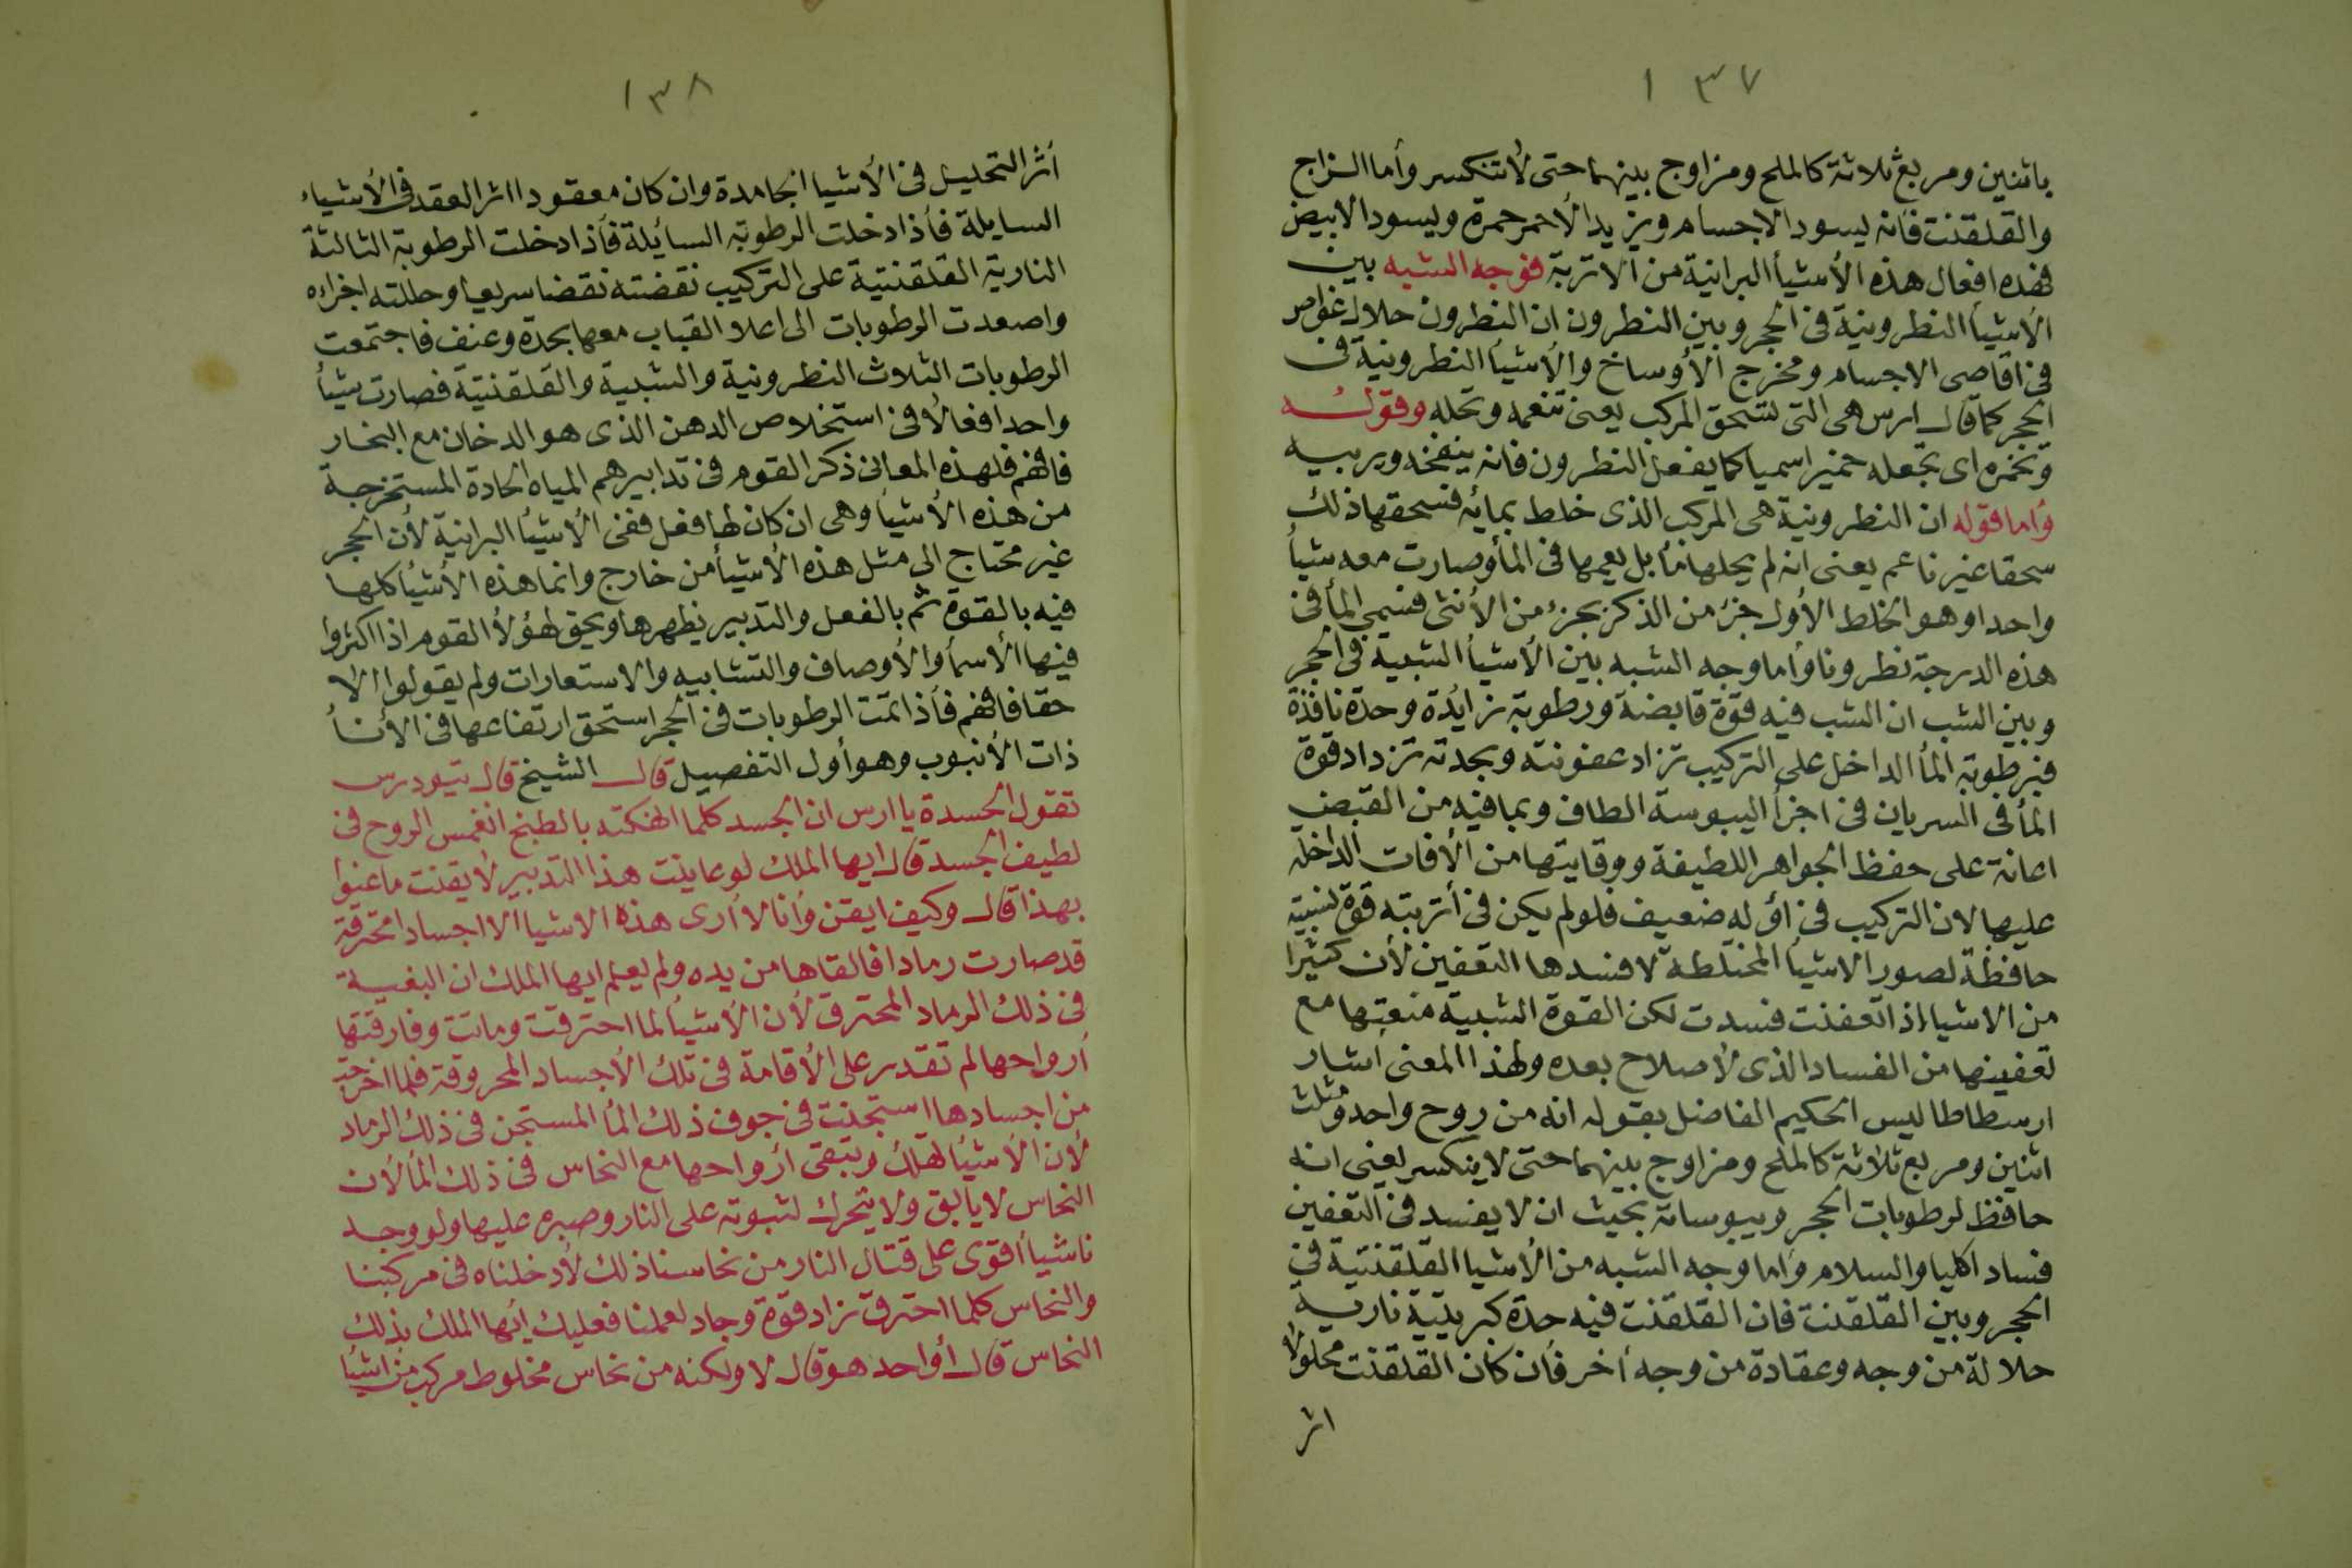 ١٣٧
باثنين ومربع ثلاثة كالملح ومزاوج بينهما حتى لأتنكسر وأما الزاج
والقلقنت فأنه يسود الاجسام ويزيد الأحمر حمرة ويسود الابيض
فهذه افعال هذه الأشيأ البرانية من الاتربة فوجه الشبه بين
الأشيأ النطرونية في الحجر وبين النطرون ان النطرون حلال غواص
في اقاصى الاجسام ومخرج الأوساخ والأشيأ النطرونية في
الحجر كما قال ارس هى التى تسحق المركب يعنى تنعمه وتحله وقوله
وتخمره اى تجعله خميرا سميا كما يفعل النطرون فانه ينفخه ويربيه
وأما قوله ان النطرونية هى المركب الذى خلط بمائه فسحقها ذلك
سحقا غير ناعم يعنى انه لم يحلها مأ بل يعمها في المأ وصارت معه شيأ
واحدا وهو الخلط الأول جزء من الذكر بجزء من الأنثى فسمى المأ في
هذه الدرجة نطرونا وأما وجه الشبه بين الأشيأ الشبية في الحجر
وبين الشب ان الشب فيه قوة قابضة ورطوبة زايدة وحدة نافذة
فبرطوبة المأ الداخل على التركيب تزاد عفونته وبحدته تزداد قوة
المأ في السريان في اجزأ اليبوسة الطاف وبما فيه من القبض
اعانة على حفظ الجواهر اللطيفة ووقايتها من الأفات الداخلة
عليها لان التركيب في أوله ضعيف فلو لم يكن في أتربته قوة شبية
حافظة لصور الاشيأ المختلطة لافسدها التعفين لأن كثيرا
من الاشياء اذا تعفنت فسدت لكن القوة الشبية منعتها مع
تعفينها من الفساد الذى لأصلاح بعده ولهذا المعنى أشار
ارسطاطاليس الحكيم الفاضل بقوله انه من روح واحد ومثلث
اثنين ومربع ثلاثة كالملح ومزاوج بينهما حتى لا ينكسر يعنى انه
حافظ لرطوبات الحجر ويبوساته بحيث ان لا يفسد في التعفين
فساد اكليا والسلام وأما وجه الشبه من الأشيا القلقنتية في
الحجر وبين القلقنت فان القلقنت فيه حدة كبريتية نارية
حلالة من وجه وعقادة من وجه أخر فأن كان القلقنت محلولا
اثر
١٣٨
أثر التحليل في الأشيا الجامدة وان كان معقودا اثر العقد في الأشياء
السايلة فأذا دخلت الرطوبة السائلة فأذا دخلت الرطوبة الثالثة
النارية القلقنتية على التركيب نقضته نقضا سريعا وحللته اجزاءه
واصعدت الرطوبات الى اعلا القباب معها بحدة وعنف فاجتمعت
الرطوبات الثلاث النطرونية والشبية والقلقنتية فصارت شيأ
واحدا فعالأ في استخلاص الدهن الذى هو الدخان مع البخار
فافهم فلهذه المعانى ذكر القوم في تدابيرهم المياه الحادة المستخرجة
من هذه الأشيأ وهى ان كان لها فعل ففى الأشيأ البرانية لأن الحجر
غير محتاج الى مثل هذه الأشيأ من خارج وانما هذه الأشيأ كلها
فيه بالقوة ثم بالفعل والتدبير يظهرها ويحق لهؤلأ القوم اذا اكثروا
فيها الأسمأ والأوصاف والتشابيه والاستعارات ولم يقولوا الا
حقا فافهم فأذا تمت الرطوبات في الحجر استحق ارتفاعها في الأنأ
ذات الأنبوب وهو أول التفصيل قال الشيخ قال تيودرس
تقول الحسدة يا ارس ان الجسد كلما انهكته بالطبخ انغمس الروح في
لطيف الجسد قال ايها الملك لو عاينت هذا التدبير لأيقنت ما عنوا
بهذا قال وكيف ايقن وأنا لا أرى هذه الاشيا الا اجسادا محترقة
قد صارت رمادا فالقاها من يده ولم يعلم ايها الملك ان البغية
في ذلك الرماد المحترق لأن الأشيأ لما احترقت وماتت وفارقتها
أرواحها لم تقدر على الأقامة في تلك الأجساد المحروقة فلما اخرجت
من اجسادها استجنت في جوف ذلك المأ المستجن في ذلك الرماد
لأن الأشيأ تهلك وتبقى أرواحها مع النحاس في ذلك المأ لأن
النحاس لا يابق ولا يتحرك لثبوته على النار وصبره عليها ولو وجد
ناشيأ أقوى على قتال النار من نحاسنا ذلك لأدخلناه في مركبنا
والنحاس كلما احترق زاد قوة وجاد لعملنا فعليك أيها الملك بذلك
النحاس قال أواحد هو قال لا ولكنه من نحاس مخلوط مركب من اشيأ